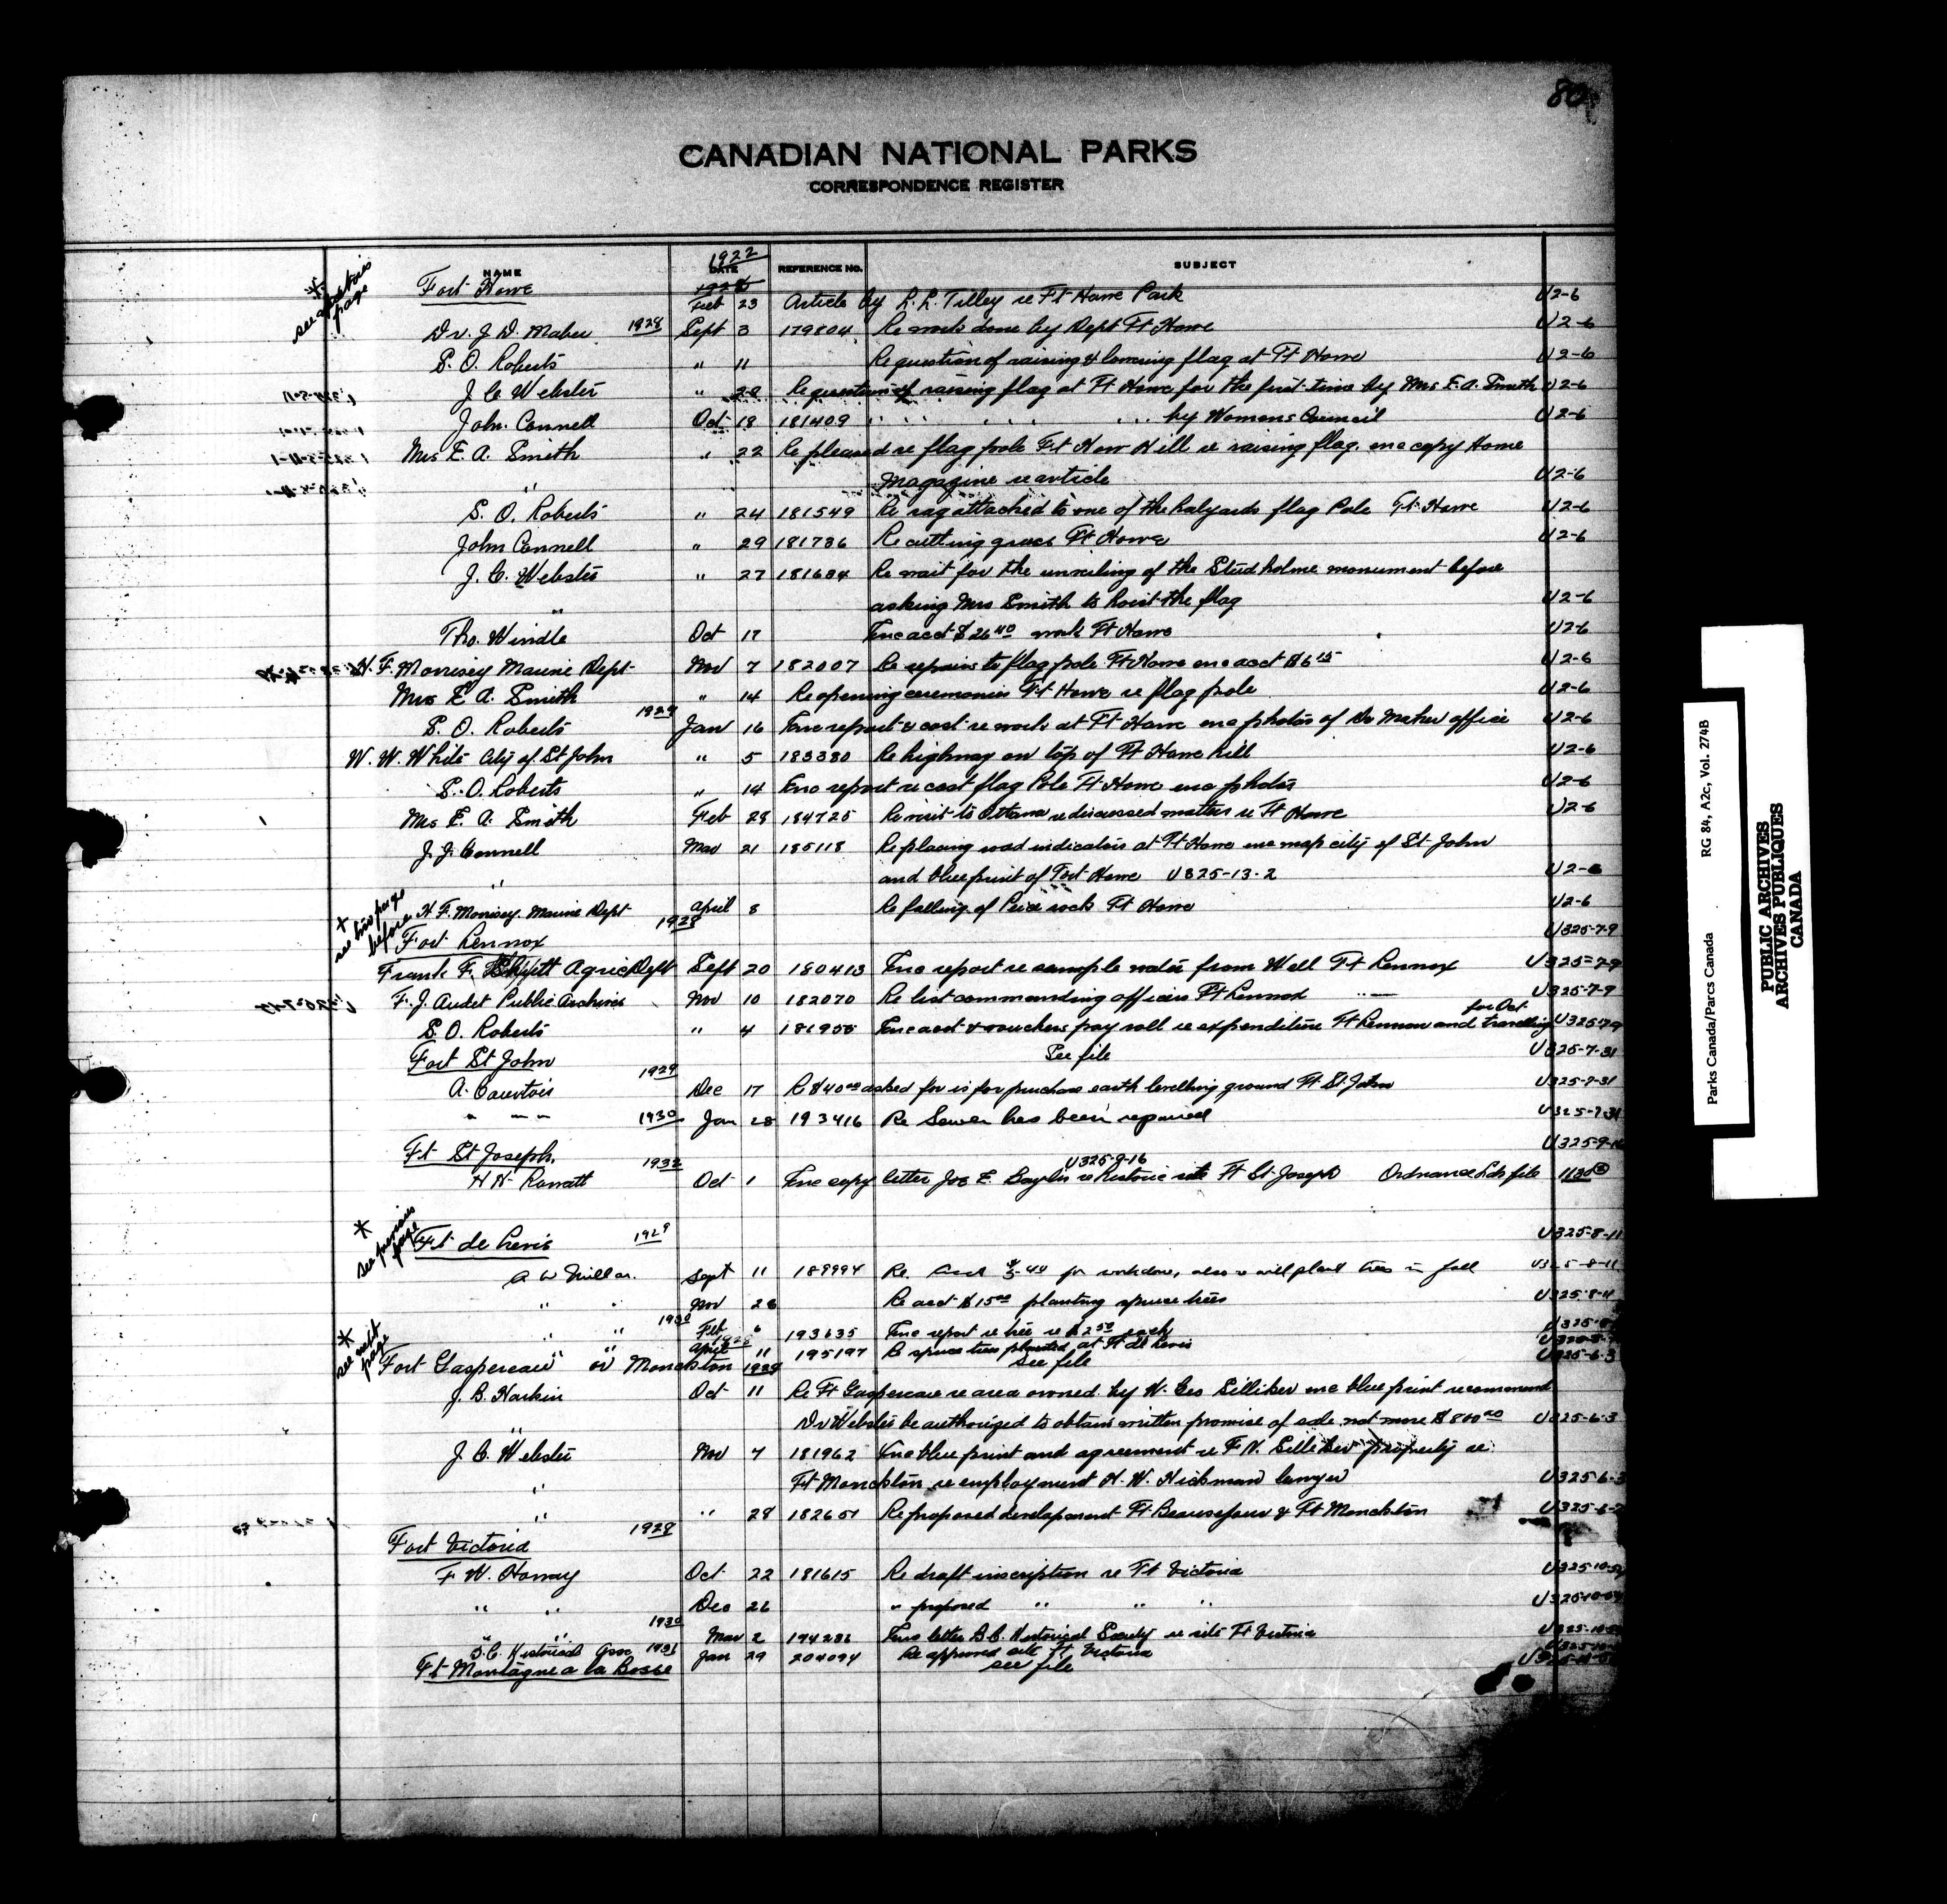 80
CANADIAN NATIONAL PARKS
CORRESPONDENCE REGISTER
NAME 1922 DATE REFERENCE NO. SUBJECT
* see page
Fort Howe Feb 23 Article by L. L. Tilley re Ft Howe Park U2-6
Dr. J. D. Maher 1928 Sept 3 179804 Re work done by Dept Ft Howe U2-6
S. O. Roberts " 11 Re question of raising & lowering flag at Ft Howe U2-6
J. C. Webster " 20 Re question of raising flag at Ft Howe for the first time by Mrs E. A. Smith U2-6
John Connell Oct 18 181409 " by Womens Council U2-6
Mrs E. A. Smith " 22 Re pleased re flag pole Ft Howe Hill re raising flag. enc copy Home
" Magazine re article U2-6
S. O. Roberts " 24 181549 Re rag attached to one of the halyards flag Pole Ft Howe U2-6
John Connell " 29 181736 Re cutting grass Ft Howe U2-6
J. C. Webster " 27 181684 Re wait for the unveiling of the Studholme monument before
" asking Mrs Smith to hoist the flag U2-6
Tho. Windle Oct 17 Enc acct $26 40 work Ft Howe U2-6
H. F. Morrisey Marine Dept Nov 7 182007 Re repairs to flag pole Ft Howe enc acct $6 15 U2-6
Mrs E. A. Smith " 14 Re opening ceremonies Ft Howe re flag pole U2-6
S. O. Roberts 1929 Jan 16 Enc report & cost re work at Ft Howe enc photos of Dr Maher office U2-6
W. W. White City of St John " 5 183380 Re highway on top of Ft Howe hill U2-6
S. O. Roberts " 14 Enc report re cost flag Pole Ft Howe enc photos U2-6
Mrs E. A. Smith Feb 28 184725 Re visit to Ottawa re discussed matters re Ft Howe U2-6
J. J. Connell Mar 21 185118 Re placing road indicators at Ft Howe enc map city of St John
" and blueprint of Fort Howe U325-13-2 U2-6
* see two page before
H. F. Morrisey. Marine Dept April 8 Re falling of rock Ft Howe U2-6
Fort Lennox 1928 U325-7-9
Frank F. Agric Dept Sept 20 180413 Enc report re sample water from Well Ft Lennox U325-7-9
F. J. Audet Public Archives Nov 10 182070 Re list commanding officers Ft Lennox U325-7-9
S. O. Roberts " 4 181955 Enc acct & vouchers pay roll re expenditure Ft Lennox and travelling for Oct U325-7-9
Fort St John See file U325-7-31
A. Courtois 1929 Dec 17 Re $40 00 asked for is for purchase earth levelling ground Ft St John U325-7-31
" 1930 Jan 28 193416 Re Sewer has been repaired U325-7-31
Ft St Joseph. U325-9-16
U325-9-16
H. H. 1932 Oct 1 Enc copy letter Joe E. re historic site Ft St Joseph Ordnance Lds file
* see previous page
Ft de Levis 1929 U325-8-11
A W Millar. Sept 11 189994 Re acct for work done, also re will plant trees in fall U325-8-11
" " Nov 26 Re acct $15 00 planting spruce trees U325-8-11
" " 1930 Feb 6 193635 Enc report re tree re $2 50 each
" " April 11 195197 Re spruce trees planted at Ft de Levis
* see next page
Fort Gaspereau or Monckton 1928 See file U325-6-3
J. B. Harkin Oct 11 Re Ft Gaspereau re area owned by W. Geo Silliker enc blue print recommend
" Dr Webster be authorized to obtain written promise of sale not more $800 00 U325-6-3
J. C. Webster Nov 7 181962 Enc blue print and agreement re F. N. Silliker property re
" Ft Monckton re employment H. W. Hickman lawyer U325-6-3
" " 28 182651 Re proposed development Ft Beausejour & Ft Monckton U325-6-2
Fort Victoria 1928
F. W. Howay Oct 22 181615 Re draft inscription re Ft Victoria
" " Dec 26 " proposed " " "
" " 1930 Mar 2 194286 Enc letter B.C. Historical Society re site Ft Victoria
B. C. Historical Assoc 1931 Jan 29 204094 Re approved site Ft Victoria
Ft Montagne a la Bosse see file
Parks Canada/Parcs Canada RG 84, A2c, Vol. 274B
PUBLIC ARCHIVES
ARCHIVES PUBLIQUES
CANADA